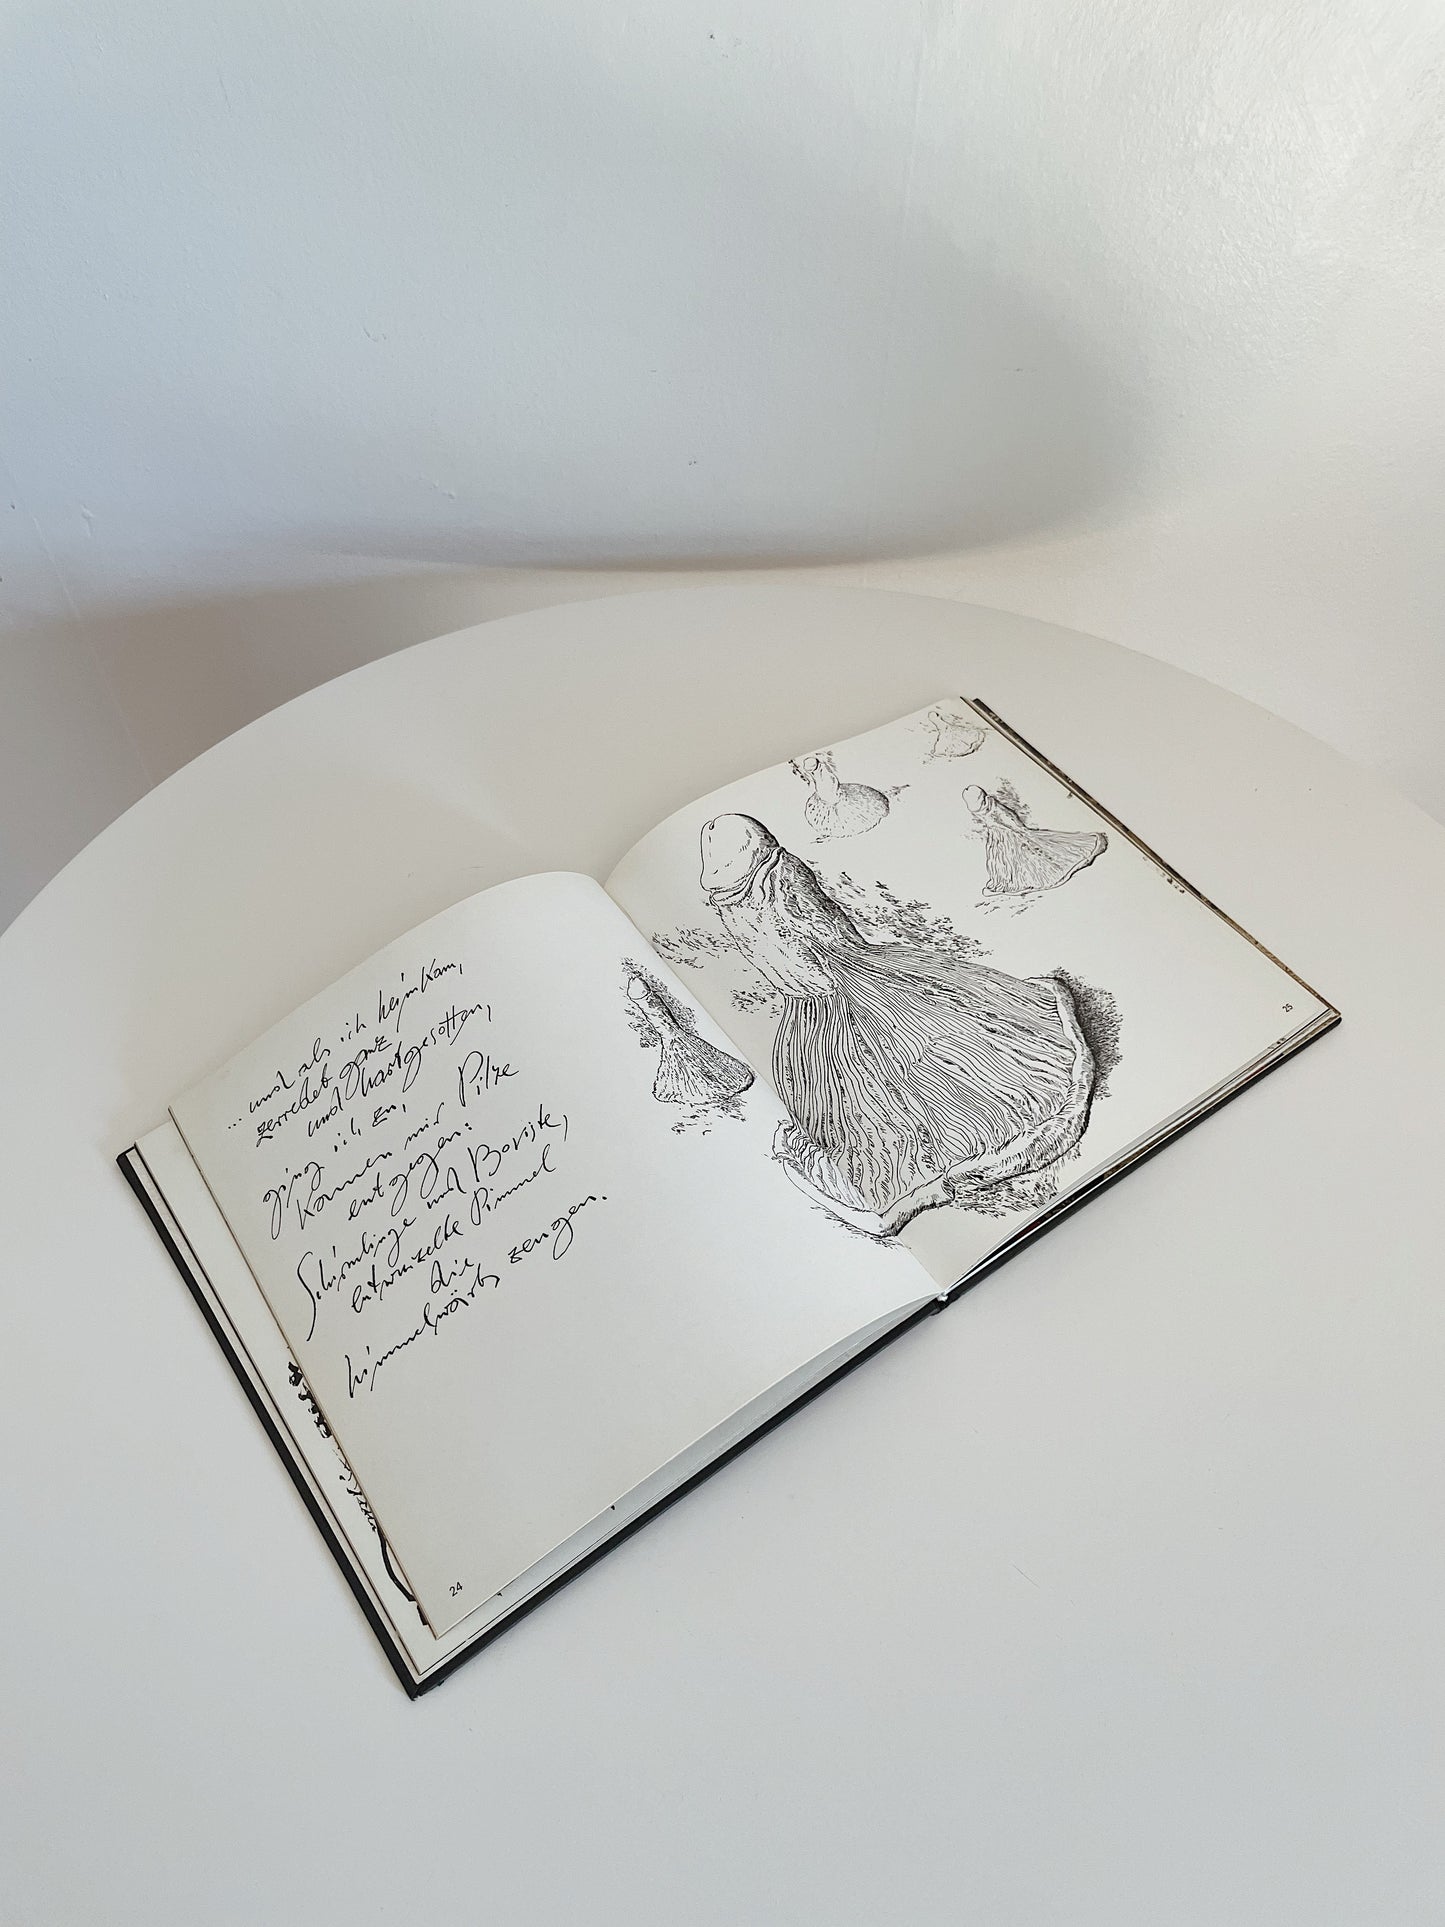 ... und als ich heimkam,
zerredet ganz
und hartgesotten,
ging ich zu,
kamen mir Pilze
entgegen:
Schirmlinge und Boviste,
entwurzelte Pimmel
die
himmelwärts zeugen.
24
25